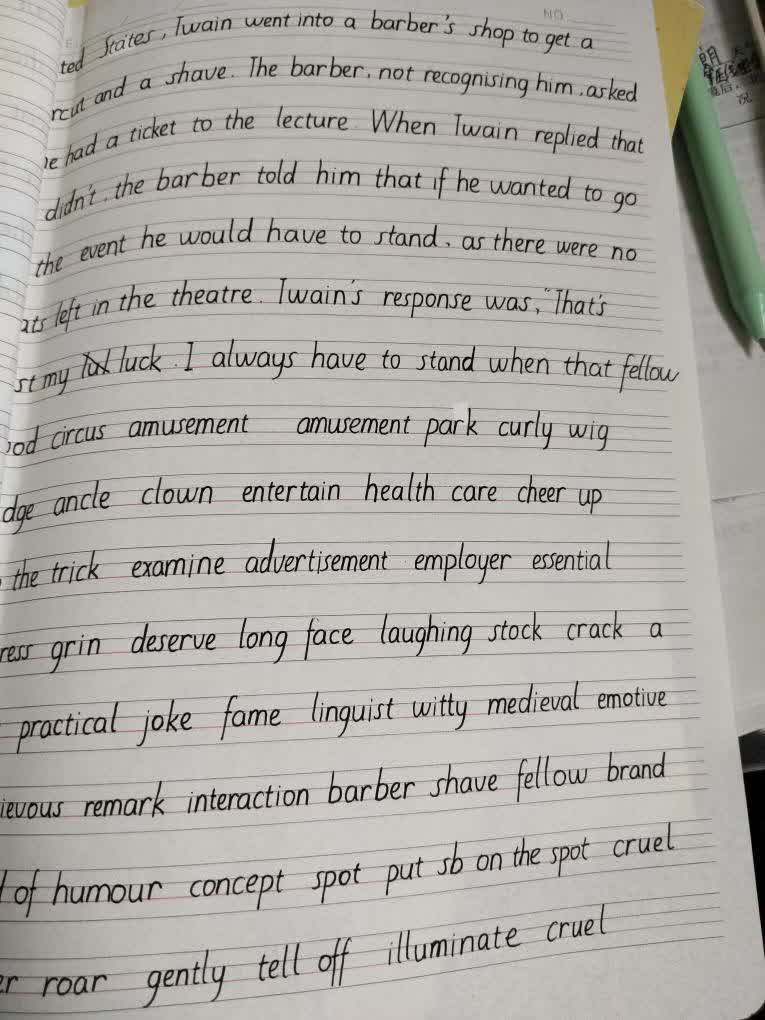 NO
ted States, Twain went into a barber's shop to get a
rcut and a shave. The barber, not recognising him, asked
e had a ticket to the lecture. When Twain replied that
didn't, the barber told him that if he wanted to go
the event he would have to stand, as there were no
ats left in the theatre. Twain's response was, "That's
st my luck. I always have to stand when that fellow
ood circus amusement amusement park curly wig
dge ancle clown entertain health care cheer up
the trick examine advertisement employer essential
ress grin deserve long face laughing stock crack a
practical joke fame linguist witty medieval emotive
ievous remark interaction barber shave fellow brand
of humour concept spot put sb on the spot cruel
er roar gently tell off illuminate cruel
朗
况